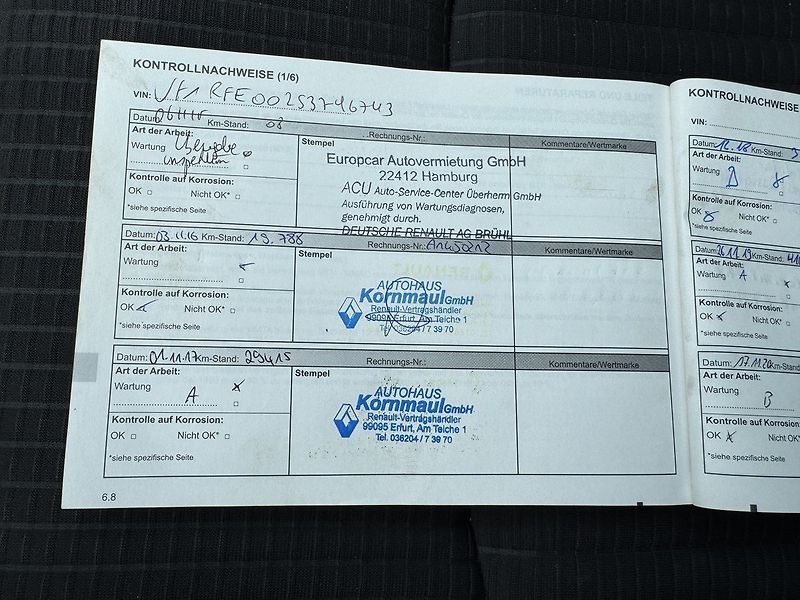 KONTROLLNACHWEISE (1/6)
VIN: VF1 RFE00253746743
Datum: Km-Stand: 08 Rechnungs-Nr.:
Art der Arbeit:
Wartung Übergabe
inspektion
Kontrolle auf Korrosion:
OK Nicht OK*
*siehe spezifische Seite
Stempel
Europcar Autovermietung GmbH
22412 Hamburg
ACU Auto-Service-Center Überherrn GmbH
Ausführung von Wartungsdiagnosen,
genehmigt durch.
DEUTSCHE RENAULT AG BRÜHL
Kommentare/Wertmarke
Datum: 03.11.16 Km-Stand: 19.788 Rechnungs-Nr.:
Art der Arbeit:
Wartung
Kontrolle auf Korrosion:
OK Nicht OK*
*siehe spezifische Seite
Stempel
AUTOHAUS
Kornmaul GmbH
Renault-Vertragshändler
99095 Erfurt, Am Teiche 1
Tel. 036204 / 7 39 70
Kommentare/Wertmarke
Datum: 01.11.17 Km-Stand: 29415 Rechnungs-Nr.:
Art der Arbeit:
Wartung A x
Kontrolle auf Korrosion:
OK Nicht OK*
*siehe spezifische Seite
Stempel
AUTOHAUS
Kornmaul GmbH
Renault-Vertragshändler
99095 Erfurt, Am Teiche 1
Tel. 036204 / 7 39 70
Kommentare/Wertmarke
6.8
KONTROLLNACHWEISE
VIN:
Datum: Km-Stand:
Art der Arbeit:
Wartung
Kontrolle auf Korrosion:
OK Nicht OK*
*siehe spezifische Seite
Datum: 26.11.19 Km-Stand:
Art der Arbeit:
Wartung A x
Kontrolle auf Korrosion:
OK x Nicht OK*
*siehe spezifische Seite
Datum: 17.11.20 Km-Stand:
Art der Arbeit:
Wartung B
Kontrolle auf Korrosion:
OK x Nicht OK*
*siehe spezifische Seite